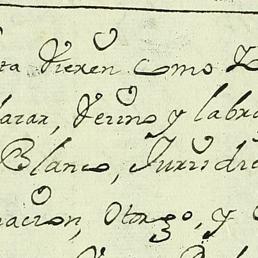 ra Vieren Como
azar, Vezino y labra
Blanco, Jurisdic
nacion, Otorgo, y